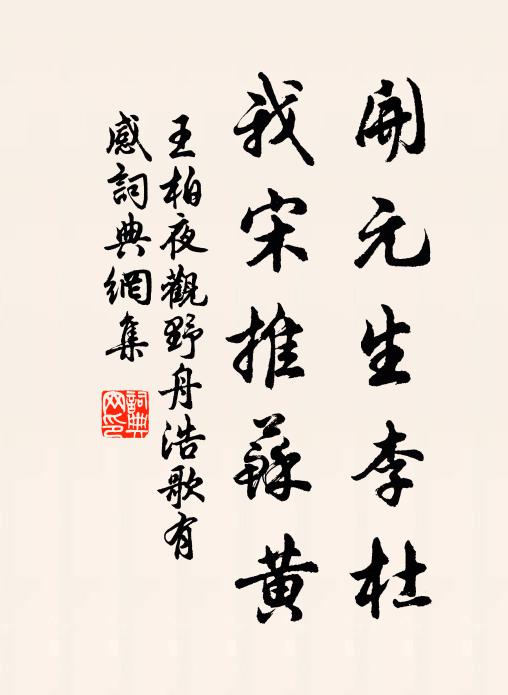 開元生李杜
我宋推蘇黄
王柏夜觀野舟浩歌有
感詞典網集
詞典
网印